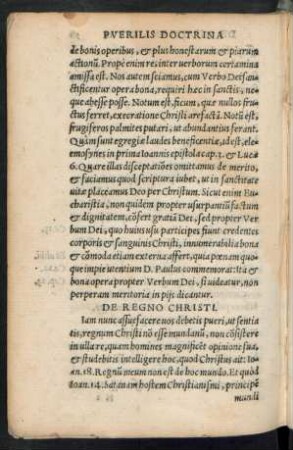 PVERILIS DOCTRINA
de bonis operibus, & plus honestarum & piarum
actionū. Prope enim re, inter verborum certamina
amissa est. Nos autem sciamus, cum Verbo Dei san-
ctificentur opera bona, requiri hæc in sanctis, ne-
que abesse posse. Notum est, ficum, quæ nullos fru-
ctus ferret, execratione Christi arefactā. Notū est,
frugiferos palmites putari, ut abundantius ferant.
Quàm sunt egregiæ laudes beneficentiæ, id est, ele-
emosynes in prima Ioannis epistola cap. 3. & Lucæ
6. Quare illas disceptatiões omittamus de merito,
& faciamus quod scriptura iubet, ut in sanctitate
uitæ placeamus Deo per Christum. Sicut enim Eu-
charistia, non quidem propter usurpantiū factum
& dignitatem, cōfert gratiā Dei, sed propter Ver
bum Dei, quo huius usu participes fiunt credentes
corporis & sanguinis Christi, innumerabilia bona
& cōmoda etiam externa affert, quia pœnam quo-
que impie utentium D. Paulus commemorat: Ita &
bona opera propter Verbum Dei, si uideatur, non
perperam meritoria in pijs dicantur.
DE REGNO CHRISTI.
Iam nunc assuefacere nos debetis pueri, ut sentia
tis, regnum Christi nō esse mundanū, non cōsistere
in ulla re, quam homines magnificēt opinione sua,
& studebitis intelligere hoc, quod Christus ait: Io-
an. 18. Regnū meum non est de hoc mundo. Et quòd
Ioan. 14. Satanam hostem Christianismi, principē
mundi